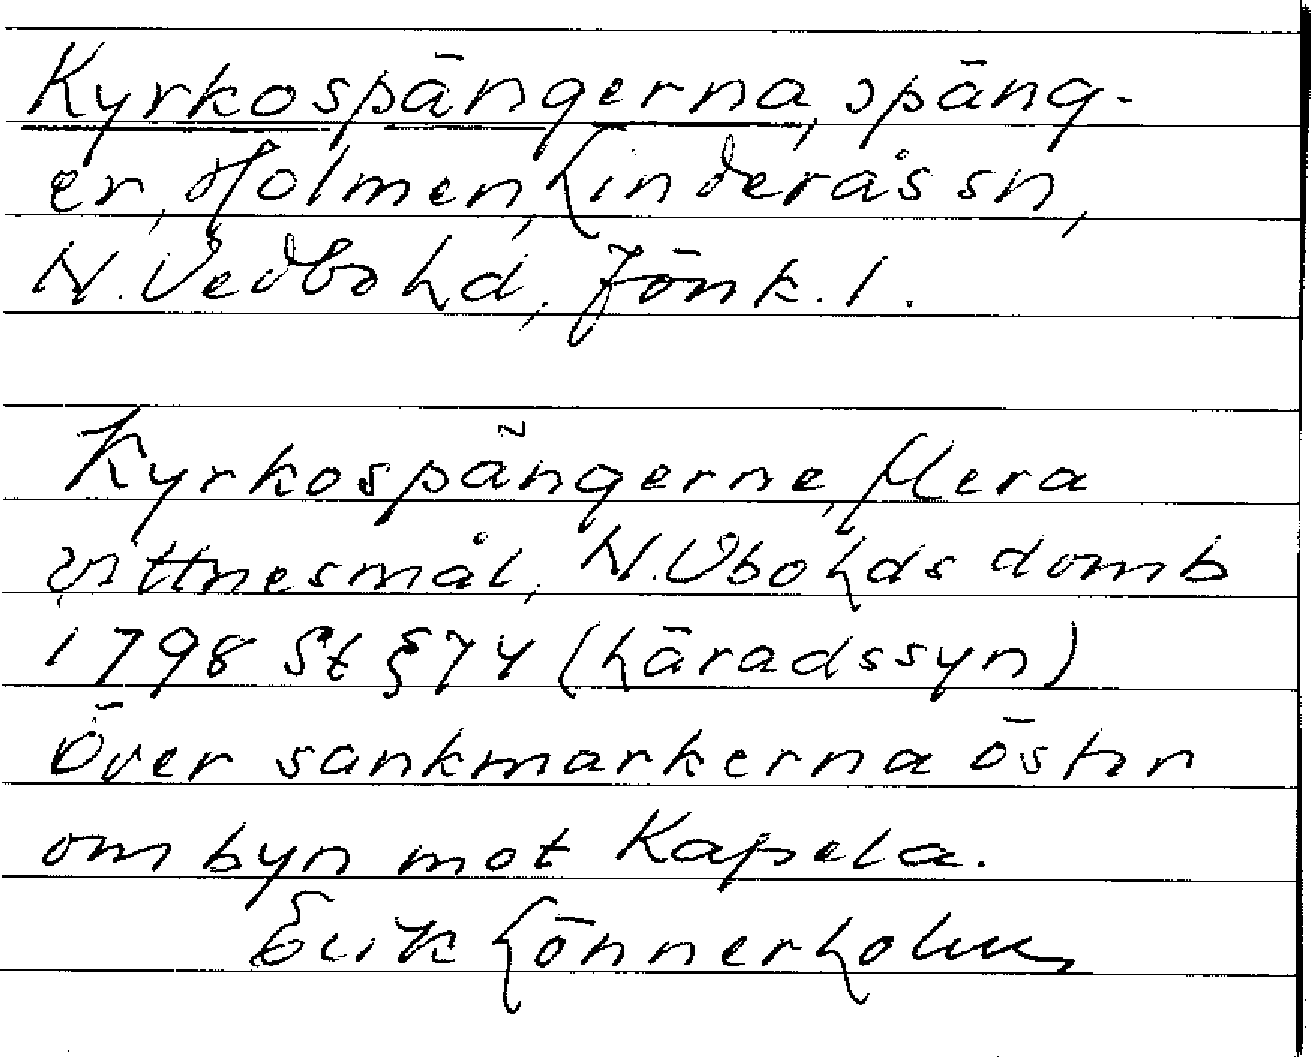 Kyrkospängerna, späng-
er, Holmen, Linderås sn,
N. Vedbo hd, Jönk. l.
Kyrkospängerne, flera
vittnesmål, N. Vbo hds domb
1798 St § 74 (häradssyn)
Över sankmarkerna östr
om byn mot Kapela.
Erik Lönnerholm